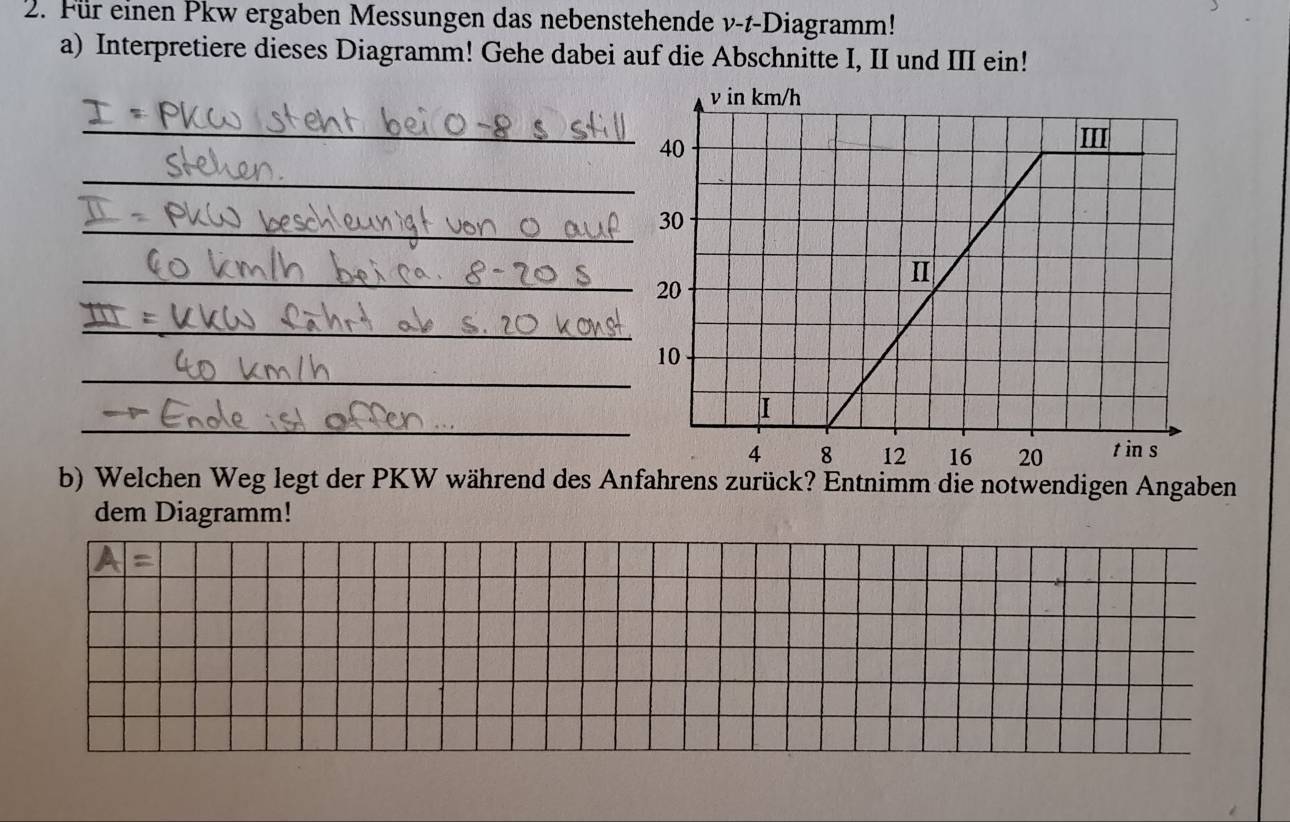 2. Für einen Pkw ergaben Messungen das nebenstehende v-t-Diagramm!
a) Interpretiere dieses Diagramm! Gehe dabei auf die Abschnitte I, II und III ein!
I = PKW steht bei 0-8 s still
stehen.
II = PKW beschleunigt von 0 auf
40 km/h bei ca. 8-20 s
III = KKW fährt ab s. 20 konst.
40 km/h
→ Ende ist offen...
v in km/h
40
30
20
10
I
II
III
4 8 12 16 20 t in s
b) Welchen Weg legt der PKW während des Anfahrens zurück? Entnimm die notwendigen Angaben
dem Diagramm!
A =